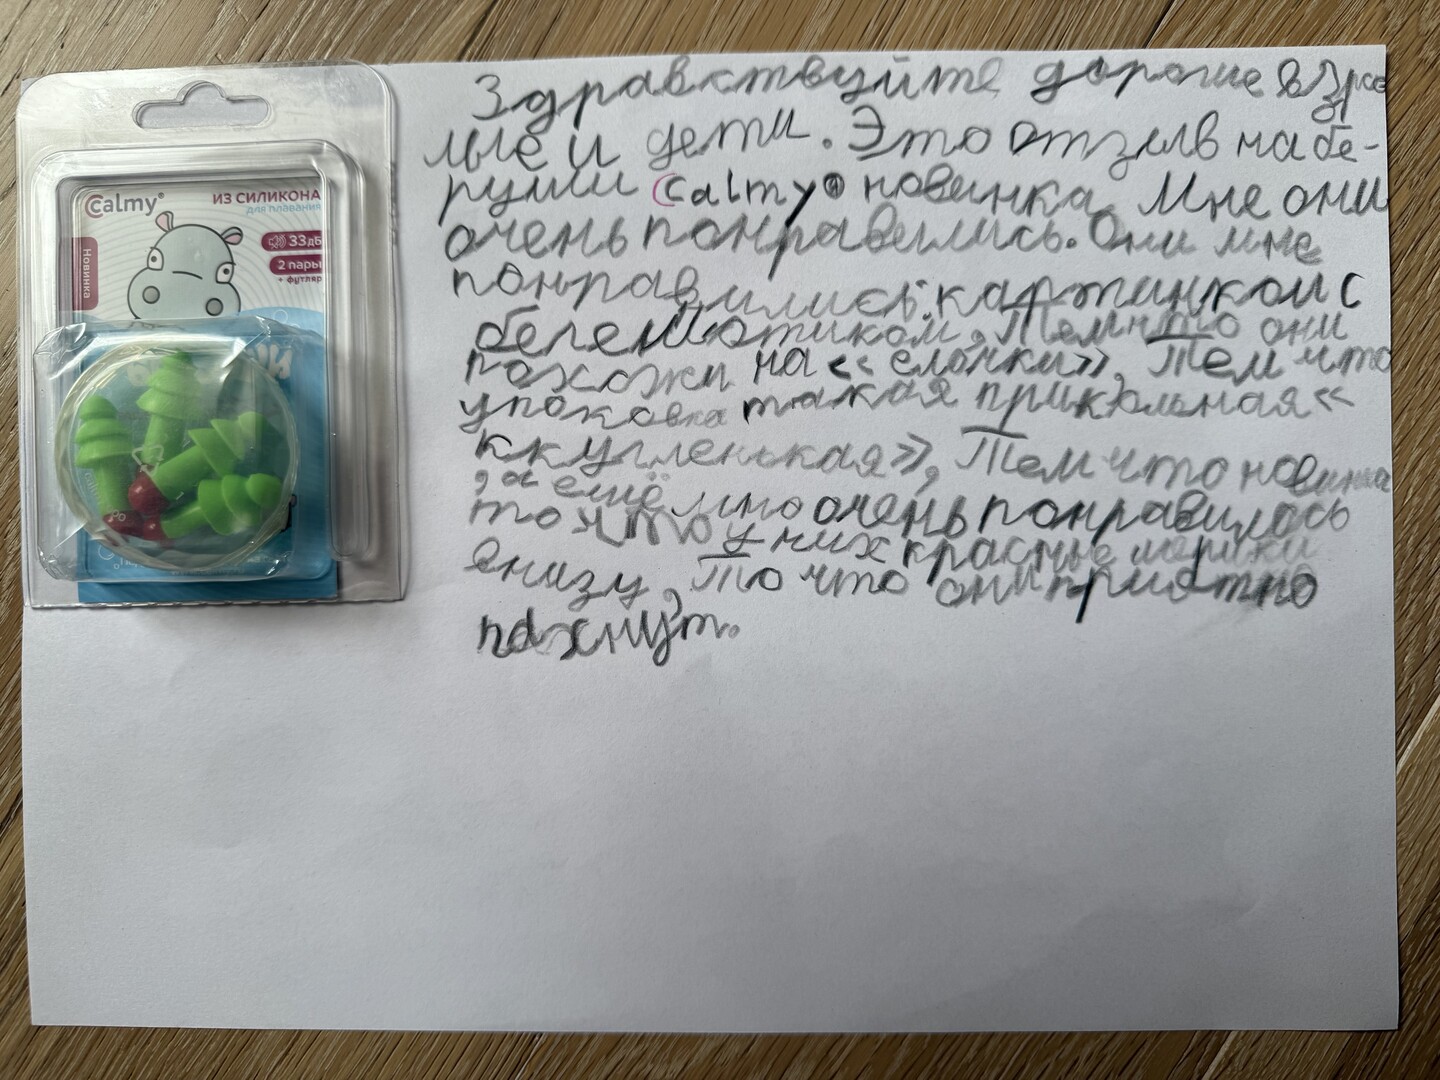 Calmy®
ИЗ СИЛИКОНА
для плавания
33дб
2 пары
+ футляр
Новинка
Здравствуйте дорогие взрос
лые и дети. Это отзыв на бе-
руши Calmy® новинка. Мне они
очень понравились. Они мне
понравились: картинкой с
бегемотиком, Тем что они
похожи на «елочки», Тем что
упаковка такая прикольная «
ккугленькая», Тем что новинка
, а ещё мно очень понравилось
то что у них красные шарики
внизу, То что они приятно
пахнут.